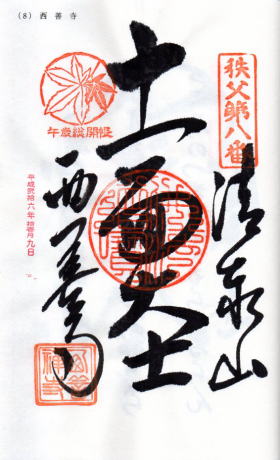 （8）西善寺
秩父第八番
清泰山
十一面大士
午歳総開帳
西善寺
平成弐拾六年 拾壱月九日